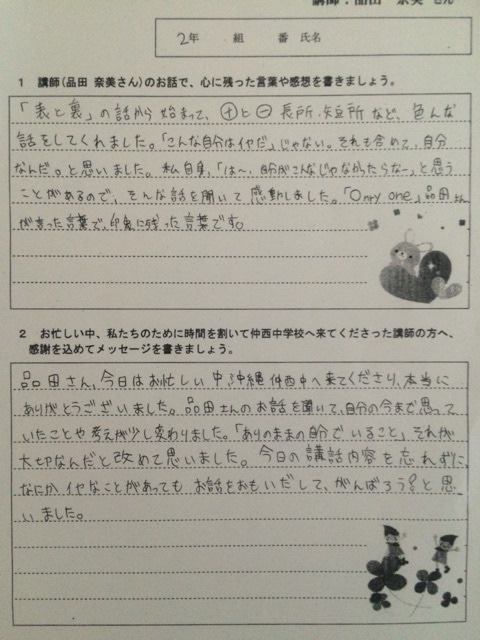 講師：品田 奈美 さん
2年 組 番 氏名
1 講師（品田 奈美さん）のお話で、心に残った言葉や感想を書きましょう。
「表と裏」の話から始まって、⊕と⊖ 長所・短所など、色んな
話をしてくれました。「こんな自分はイヤだ」じゃない。それも含めて、自分
なんだ。と思いました。私自身、「は〜、自分がこんなじゃなかったらなー」と思う
ことがあるので、そんな話を聞いて感動しました。「Only one」品田さん
が言った言葉で、印象に残った言葉です。
2 お忙しい中、私たちのために時間を割いて仲西中学校へ来てくださった講師の方へ、
感謝を込めてメッセージを書きましょう。
品田さん、今日はお忙しい中沖縄仲西中へ来てくださり、本当に
ありがとうございました。品田さんのお話を聞いて、自分の今まで思って
いたことや考えが少し変わりました。「ありのままの自分でいること」それが
大切なんだと改めて思いました。今日の講話内容を忘れずに、
なにかイヤなことがあってもお話をおもいだして、がんばろう!と思
いました。